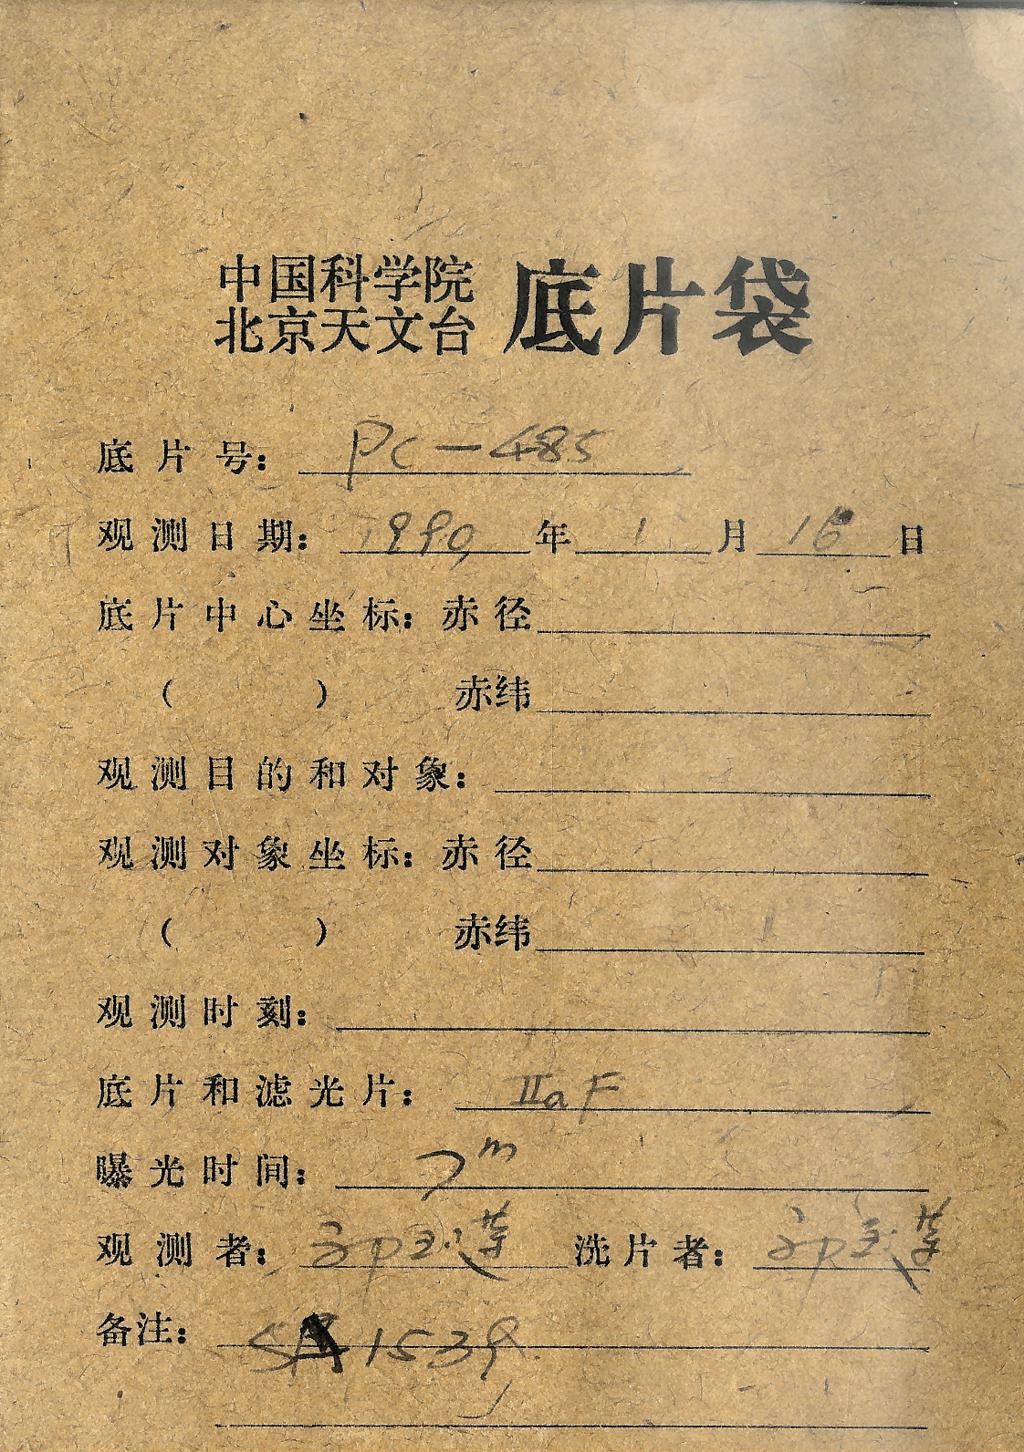 中国科学院
北京天文台 底片袋
底片号: PC-485
观测日期: 1990年 1月 16日
底片中心坐标: 赤径
( ) 赤纬
观测目的和对象:
观测对象坐标: 赤径
( ) 赤纬
观测时刻:
底片和滤光片: IIaF
曝光时间: 7m
观测者: 郭玉莲 洗片者: 郭玉莲
备注: SA 1539